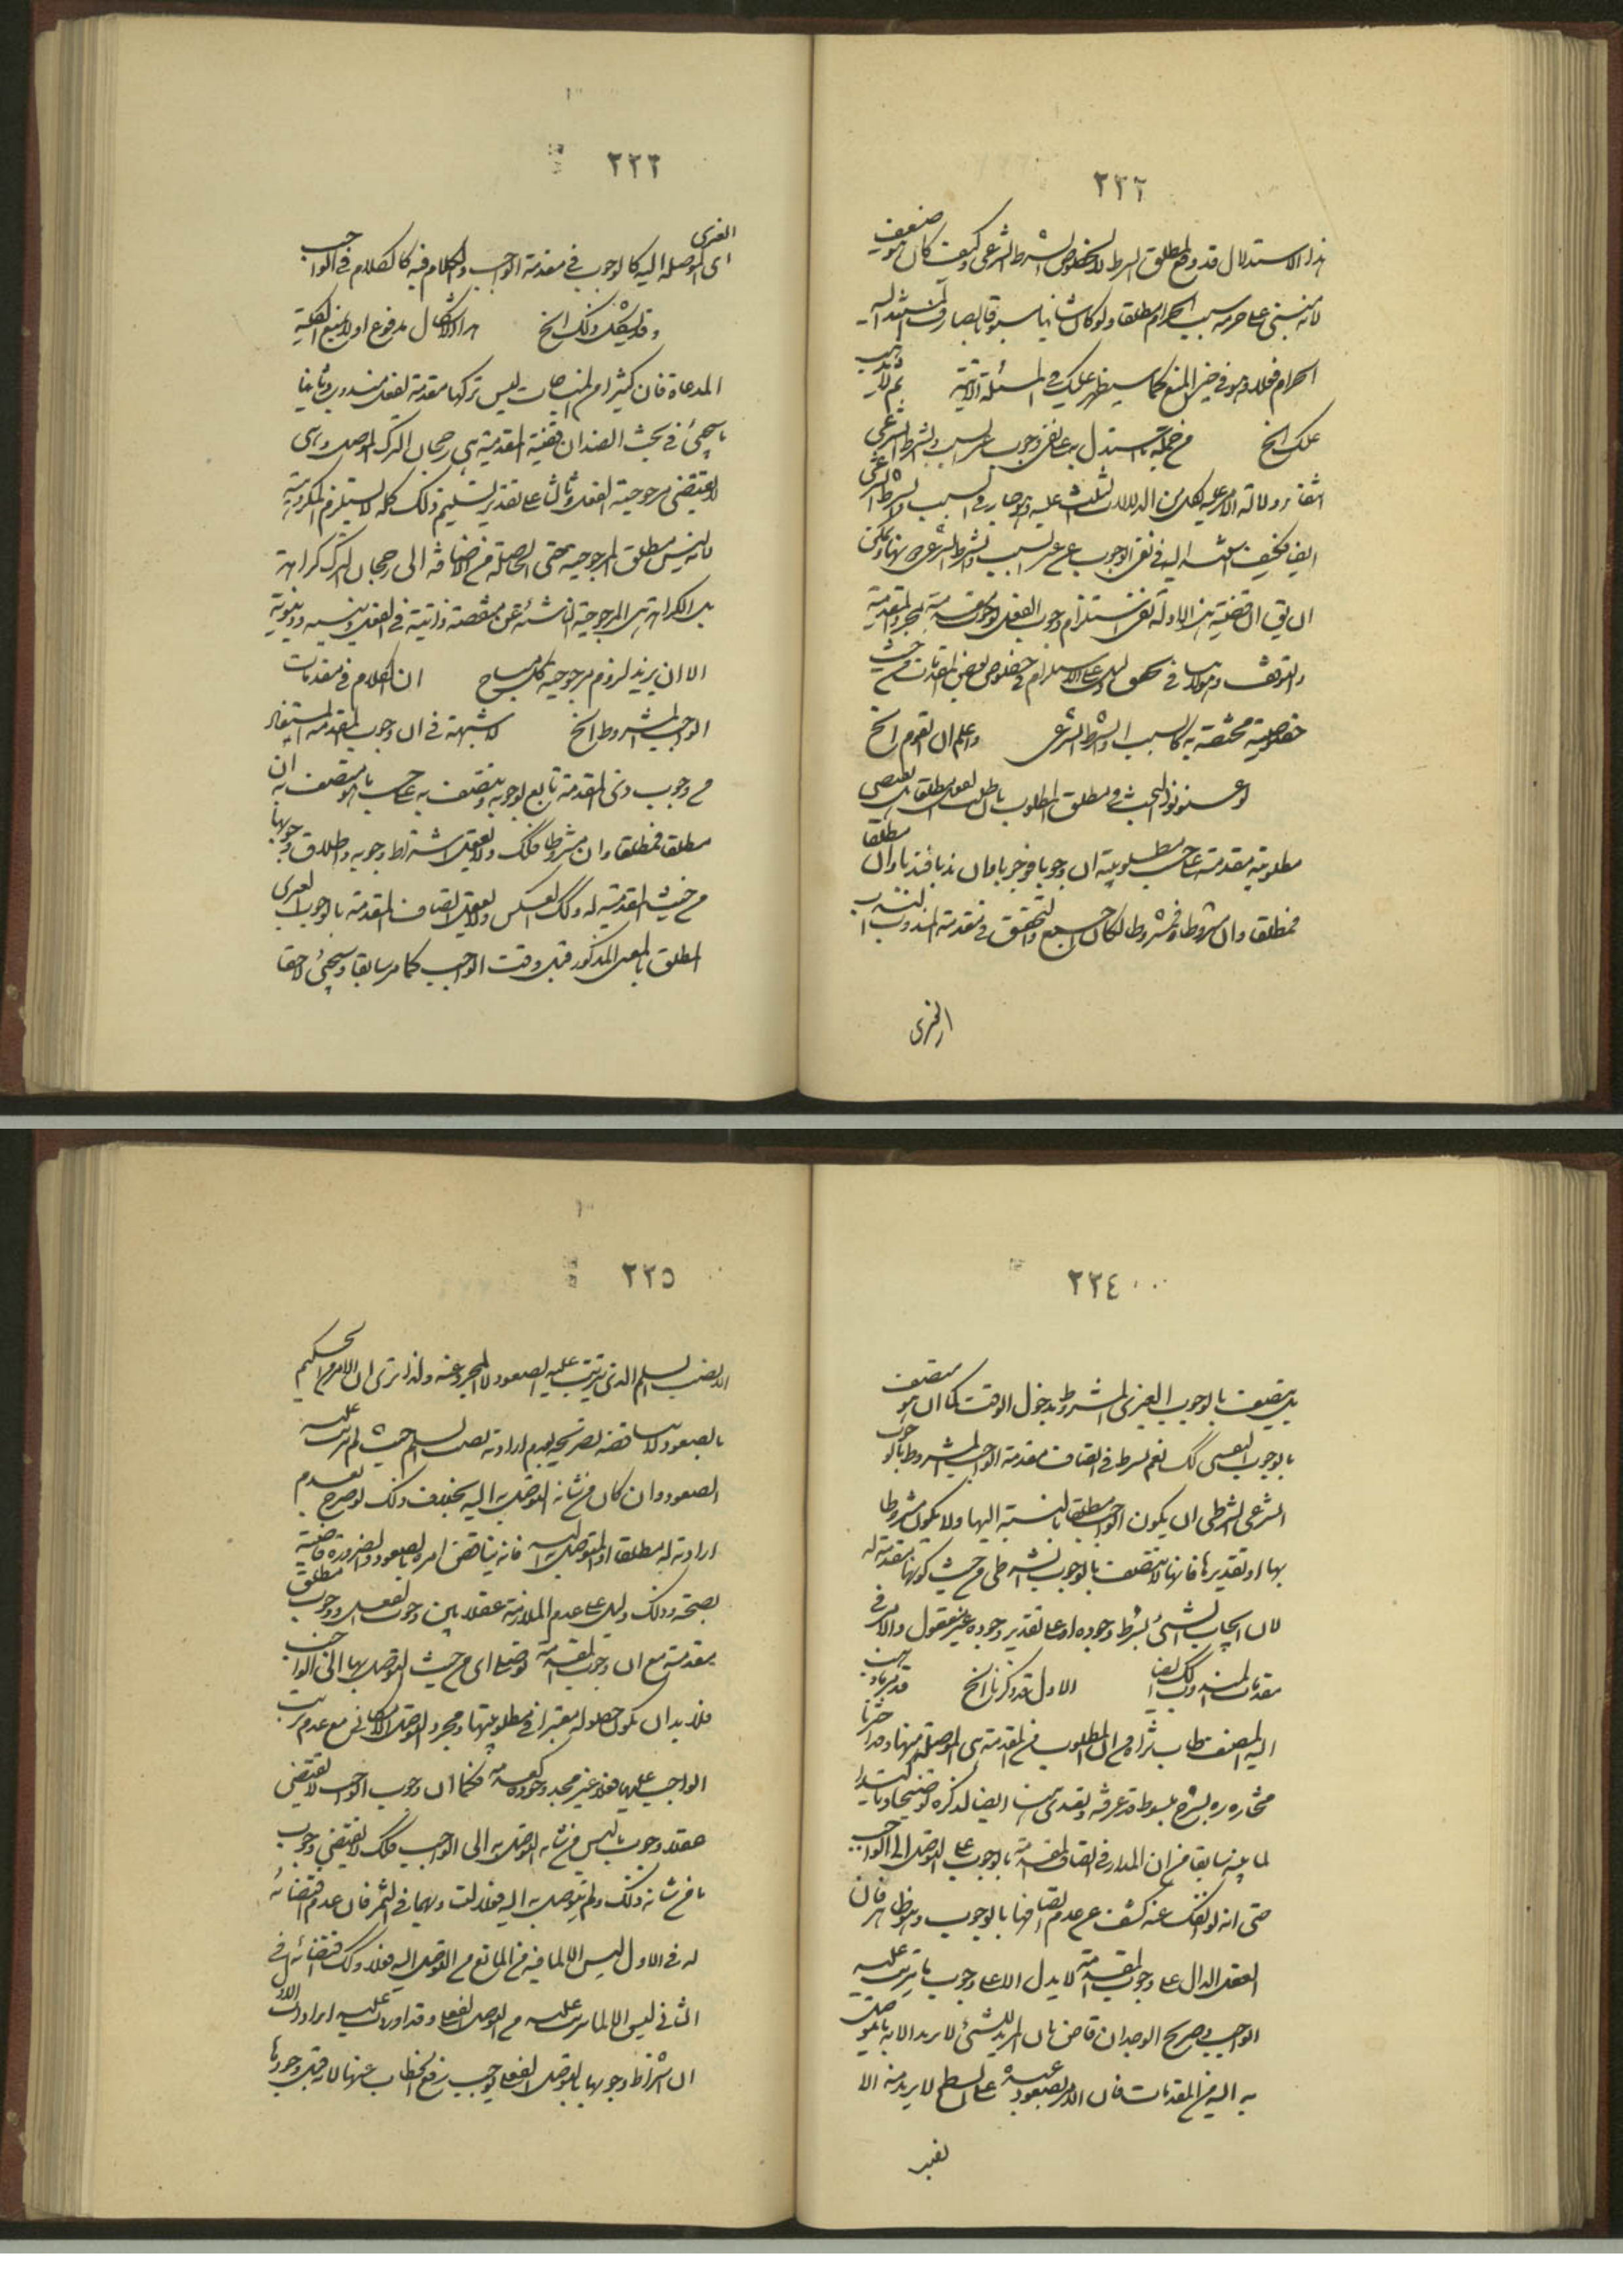 ٢٢٢
هذا الاستدلال قد وقع لمطلق الشرط لا لخصوص الشرط الشرعى وكيف كان فهو ضعيف
لانه مبنى على حرمة سبب الحرام مطلقا ولو كان شانيا مسبوقا بالصارف
الحرام فعلا وهو فى حيز المنع كما سيظهر عليك فى المسئلة الاتية
عليك الخ من جملة ما استدل به على نفى وجوب غير السبب والشرط الشرعى
انتفاء دلالة الامر عليه بكل من الدلالات الثلث عليه وهو جار فى السبب والشرط الشرعى
ايضا فكيف يستند اليه فى نفى الوجوب عن غير السبب والشرط الشرعى
ان يق ان قضية هذه الادلة نفى استلزام وجوب الفعل لوجوب مقدمته لمجرد المقدمية
والتوقف وهو لا ينافى
خصوصية مختصة به كالسبب والشرط الشرعى واعلم ان القوم الخ
لو عنونوا البحث فى مطلق المطلوب
مطلوبية مقدمته على حسب مطلوبيته ان وجوبا فوجوبا وان ندبا فندبا وان مطلقا
فمطلقا وان مشروطا فمشروطا لكان اجمع والتحقيق فى مقدمة المندوب الندب
الغيرى
٢٢٣
الغيرى
اى الموصلة اليه كالوجوب فى مقدمة الواجب والكلام فيه كالكلام فى الواجب
وقد يشكل ذلك الخ هذا الاشكال مدفوع اولا بمنع الكلية
المدعاة فان كثيرا من المباحات ليس تركها مقدمة لفعل مندوب وثانيا
ما سيجئ فى بحث الضد ان قضية المقدمية هى رجحان الترك الموصل وهى
لا يقتضى مرجوحية الفعل وثالثا على تقدير تسليم ذلك كله لا يستلزم المكروهية
لانه ليس مطلق المرجوحية حتى الحاصلة من الاضافة الى رجحان الترك كراهة
بل الكراهة هى المرجوحية الناشئة عن منقصة ذاتية فى الفعل دينية ودنيوية
الا ان يريد لزوم مرجوحية كل مباح ان الكلام فى مقدمات
الواجب المشروط الخ لا شبهة فى ان وجوب المقدمة المستفاد
من وجوب ذى المقدمة تابع لوجوبه ويتصف به على حسب ما يتصف به ان
مطلقا فمطلقا وان مشروطا فكك ولا يعقل اشتراط وجوبه واطلاق وجوبها
من حيث المقدمية له وكك العكس ولا يعقل اتصاف المقدمة بالوجوب الغيرى
المطلق بالمعنى المذكور قبل وقت الواجب كما مر سابقا وسيجئ لاحقا
٢٢٤
بل يتصف بالوجوب الغيرى المشروط بدخول الوقت كما ان هو متصف
بالوجوب النفسى كك نعم يشترط فى اتصاف مقدمة الواجب المشروط بالوجوب
الشرعى الشرطى ان يكون الواجب مطلقا بالنسبة اليها ولا يكون مشروطا
بها او تقديرها فانها لا يتصف بالوجوب الشرطى من حيث كونها مقدمة له
لان ايجاب الشئ بشرط وجوده او على تقدير وجوده غير معقول والامر فى
مقدمات المندوب كك ايضا الاول قد ذكرنا الخ
اليه المصنف طاب ثراه من ان المطلوب من المقدمة هى الموصلة منها
مختاره ره بشرح مبسوط قد عرفته
لما بينه سابقا من ان المدار فى اتصاف المقدمة بالوجوب على التوصل الى الواجب
حتى انه لو انفك عنه كشف عن عدم اتصافها بالوجوب وهو ظاهر فان
العقل الدال على وجوب المقدمة لا يدل الا على وجوب ما يترتب عليه
الواجب وصريح الوجدان قاض بان المريد للشئ لا يريد الا ما يتوصل
به اليه من المقدمات فان الامر عبده بالصعود على السطح لا يريد منه الا
نصب
٢٢٥
الا نصب السلم الذى يترتب عليه الصعود لا المجرد عنه ولذا ترى ان الامر الحكيم
بالصعود لا يناقضه تصريحه بعدم ارادته نصب السلم حيث لم يترتب عليه
الصعود وان كان من شانه التوصل به اليه بخلاف ذلك لو صرح بعدم
ارادته له مطلقا او المتوصل به اليه فانه يناقض امره بالصعود والضرورة قاضية
بصحته وذلك دليل على عدم الملازمة عقلا بين وجوب الفعل ووجوب مطلق
مقدمته مع ان وجوب المقدمة توصلى اى من حيث التوصل بها الى الواجب
فلا بد ان يكون حصوله معتبرا فى مطلوبيتها ومجرد التوصل الامكانى مع عدم ترتب
الواجب عليها فعلا غير مجد وجوده كعدمه فكما ان وجوب الواجب لا يقتضى
عقلا وجوب ما ليس من شانه التوصل به الى الواجب فكك لا يقتضى وجوب
ما من شانه ذلك ولم يتوصل به اليه فعلا فان عدم اقتضائه
له فى الاول ليس الا لما فيه من المانع من التوصل اليه فعلا وكك اقتضائه فى
الثانى ليس الا لما يترتب عليه من التوصل الفعلى وقد اورد عليه ايرادات الاول
ان اشتراط وجوبها بالتوصل الفعلى يوجب رفع الخطاب عنها لا قبل وجودها